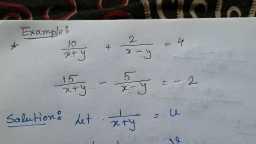 Example:
* 10/(x+y) + 2/(x-y) = 4
15/(x+y) - 5/(x-y) = -2
Solution: let 1/(x+y) = u